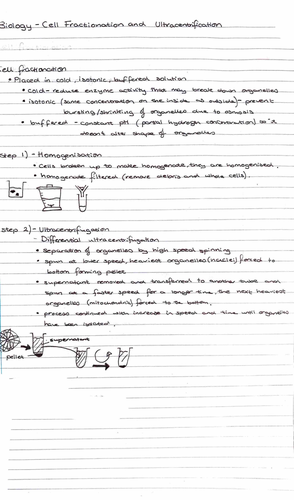 Biology - Cell Fractionation and Ultracentrification
Cell fractionation
• Placed in cold, isotonic, buffered solution
• cold - reduce enzyme activity that may break down organelles
• isotonic (same concentration on the inside to outside) - prevent
bursting/shrinking of organelles due to osmosis
• buffered - constant pH (partial hydrogen concentration) so it
doesn't alter shape of organelles
Step 1) - Homogenisation
• Cells broken up to make homogenate, they are homogenised.
• homogenate filtered (remove debris and whole cells).
Step 2) - Ultracentrifugation
- Differential ultracentrifugation
• separation of organelles by high speed spinning
• spun at lower speed, heaviest organelles (nuclei) forced to
bottom forming pellet
• supernatant removed and transferred to another tube and
spun at a faster speed for a longer time, the next heaviest
organelles (mitochondria) forced to the bottom,
• process continued with increase in speed and time until organelles
have been isolated,
supernatant
pellet